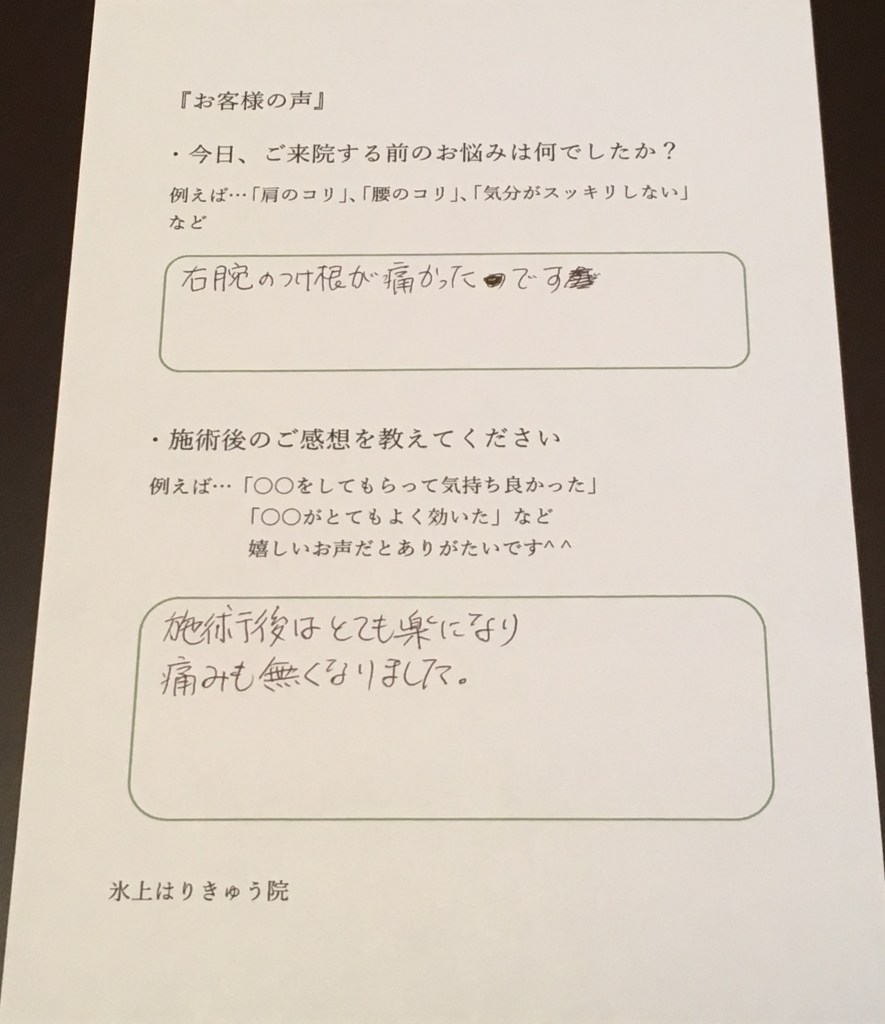 『お客様の声』
・今日、ご来院する前のお悩みは何でしたか？
例えば…「肩のコリ」、「腰のコリ」、「気分がスッキリしない」
など
右腕のつけ根が痛かったです
・施術後のご感想を教えてください
例えば…「〇〇をしてもらって気持ち良かった」
「〇〇がとてもよく効いた」など
嬉しいお声だとありがたいです^ ^
施術後はとても楽になり
痛みも無くなりました。
氷上はりきゅう院